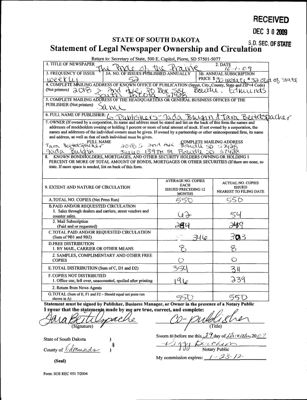 RECEIVED
DEC 30 2009
S.D. SEC. OF STATE
STATE OF SOUTH DAKOTA
Statement of Legal Newspaper Ownership and Circulation
Return to: Secretary of State, 500 E. Capitol, Pierre, SD 57501-5077
1. TITLE OF NEWSPAPER
The Pride of the Prairie
2. DATE
3. FREQUENCY OF ISSUE
weekly
3A. NO. OF ISSUES PUBLISHED ANNUALLY
52
3B. ANNUAL SUBSCRIPTION
PRICE $
4. COMPLETE MAILING ADDRESS OF KNOWN OFFICE OF PUBLICATION (Street, City, County, State and ZIP+4 Code)
(Not printers)
5. COMPLETE MAILING ADDRESS OF THE HEADQUARTERS OF GENERAL BUSINESS OFFICES OF THE
PUBLISHER (Not printers)
Same
6. FULL NAME OF PUBLISHER:
Co-Publishers
7. OWNER (If owned by a corporation, its name and address must be stated and list on the back of this form the names and
addresses of stockholders owning or holding 1 percent or more of total amount of stock. If not owned by a corporation, the
names and addresses of the individual owners must be given. If owned by a partnership or other unincorporated firm, its name
and address, as well as that of each individual must be given.
FULL NAME
COMPLETE MAILING ADDRESS
8. KNOWN BONDHOLDERS, MORTGAGES, AND OTHER SECURITY HOLDERS OWNING OR HOLDING 1
PERCENT OR MORE OF TOTAL AMOUNT OF BONDS, MORTGAGES OR OTHER SECURITIES (If there are none, so
state. If more space is needed, list on back of this form.
9. EXTENT AND NATURE OF CIRCULATION
AVERAGE NO. COPIES
EACH
ISSUED PRECEDING 12
MONTHS
ACTUAL NO. COPIES
ISSUED
NEAREST TO FILING DATE
A. TOTAL NO. COPIES (Net Press Run)
550
550
B. PAID AND/OR REQUESTED CIRCULATION
1. Sales through dealers and carriers, street vendors and
counter sales.
62
54
2. Mail Subscription
(Paid and or requested)
C. TOTAL PAID AND/OR REQUESTED CIRCULATION
(Sum of 9B1 and 9B2)
346
303
D. FREE DISTRIBUTION
1. BY MAIL, CARRIER OR OTHER MEANS
8
8
2. SAMPLES, COMPLIMENTARY AND OTHER FREE
COPIES
0
0
E. TOTAL DISTRIBUTION (Sum of C, D1 and D2)
354
311
F. COPIES NOT DISTRIBUTED
1. Office use, left over, unaccounted, spoiled after printing
196
239
2. Return from News Agents
G. TOTAL (Sum of E, F1 and F2 - Should equal net press run
shown in A)
550
550
Statement must be signed by Publisher, Business Manager, or Owner in the presence of a Notary Public
I swear that the statements made by me are true, correct, and complete:
(Signature)
Co-publisher
(Title)
State of South Dakota )
§
County of Edmunds )
Sworn to before me this 29 day of
Notary Public
My commission expires: 1-23-12
Form: SOS REC 051 7/2004